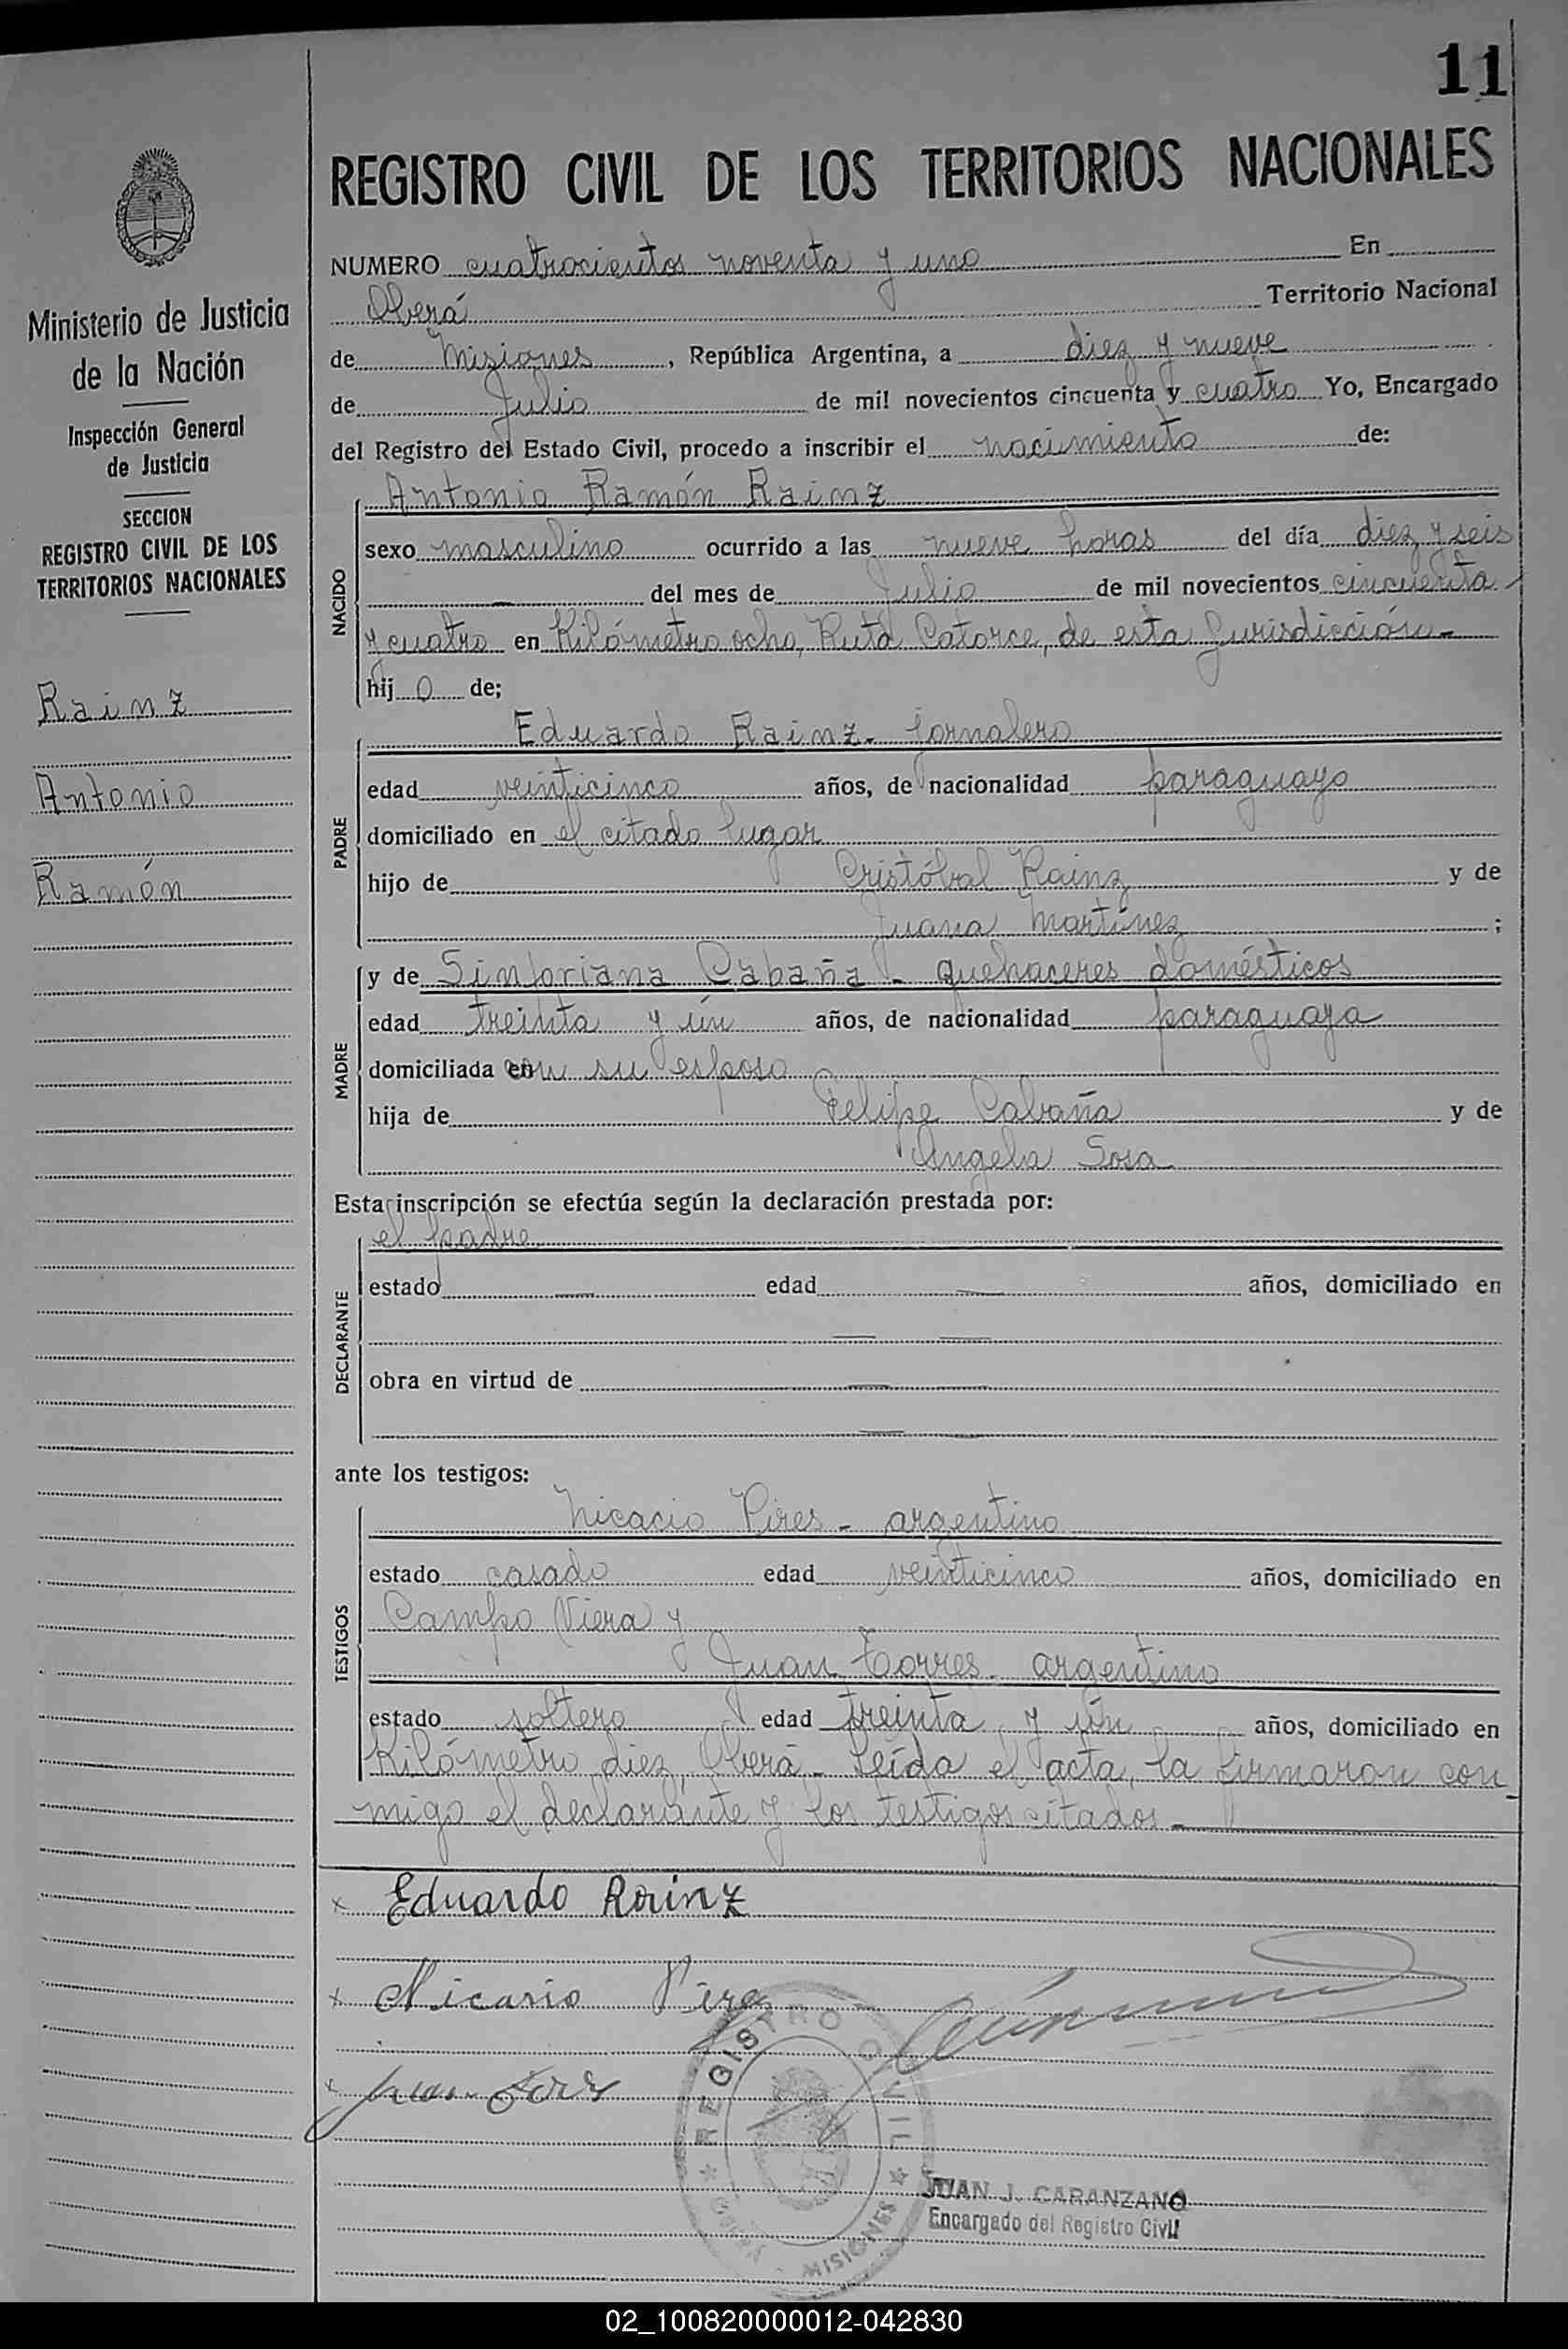 11
REGISTRO CIVIL DE LOS TERRITORIOS NACIONALES
Ministerio de Justicia
de la Nación
Inspección General
de Justicia
SECCION
REGISTRO CIVIL DE LOS
TERRITORIOS NACIONALES
Rainz
Antonio
Ramón
NUMERO cuatrocientos noventa y uno En
Oberá Territorio Nacional
de Misiones, República Argentina, a diez y nueve
de Julio de mil novecientos cincuenta y cuatro Yo, Encargado
del Registro del Estado Civil, procedo a inscribir el nacimiento de:
NACIDO
Antonio Ramón Rainz
sexo masculino ocurrido a las nueve horas del día diez y seis
— del mes de Julio de mil novecientos cincuenta
y cuatro en Kilómetro ocho, Ruta Catorce, de esta Jurisdicción-
hijo de;
PADRE
Eduardo Rainz- jornalero
edad veinticinco años, de nacionalidad paraguayo
domiciliado en el citado lugar
hijo de Cristóbal Rainz y de
Juana Martínez ;
MADRE
y de Sinforiana Cabaña - quehaceres domésticos
edad treinta y ún años, de nacionalidad paraguaya
domiciliada con su esposo
hija de Felipe Cabaña y de
Angela Sosa
Esta inscripción se efectúa según la declaración prestada por:
DECLARANTE
el padre
estado — edad — años, domiciliado en
— —
obra en virtud de — —
— —
ante los testigos:
TESTIGOS
Nicacio Pires - argentino
estado casado edad veinticinco años, domiciliado en
Campo Viera y
Juan Torres- argentino
estado soltero edad treinta y ún años, domiciliado en
Kilómetro diez, Oberá- Leída el acta, la firmaron con-
migo el declarante y los testigos citados-
x Eduardo Rainz
x Nicasio Pires
x Juan Torres
REGISTRO CIVIL
OBERA - MISIONES
JUAN J. CARANZANO
Encargado del Registro Civil
02_100820000012-042830